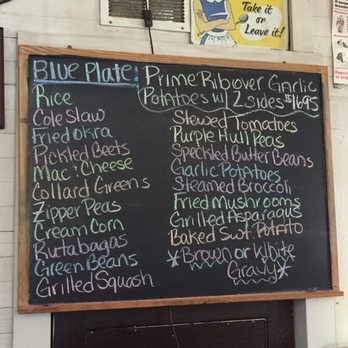 Take it or
Leave it!
Blue Plate
Prime Rib over Garlic
Potatoes w/ 2 sides $16.95
Rice
Cole Slaw
Fried Okra
Pickled Beets
Mac & Cheese
Collard Greens
Zipper Peas
Cream Corn
Rutabagas
Green Beans
Grilled Squash
Stewed Tomatoes
Purple Hull Peas
Speckled Butter Beans
Garlic Potatoes
Steamed Broccoli
Fried Mushrooms
Grilled Asparagus
Baked Swt Potato
*Brown or White
Gravy*